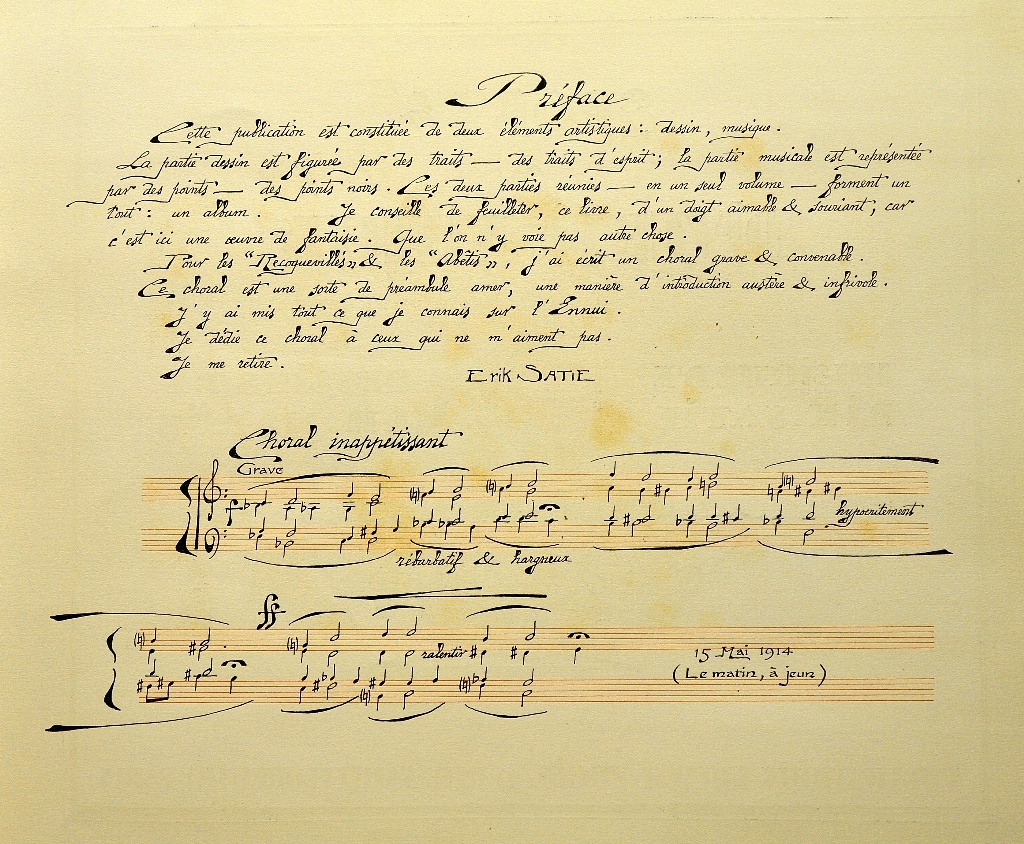 Préface
Cette publication est constituée de deux éléments artistiques : dessin, musique.
La partie dessin est figurée par des traits — des traits d'esprit ; la partie musicale est représentée
par des points — des points noirs. Ces deux parties réunies — en un seul volume — forment un
tout : un album. Je conseille de feuilleter, ce livre, d'un doigt aimable & souriant, car
c'est ici une œuvre de fantaisie. Que l'on n'y voie pas autre chose.
Pour les “Recoquevillés” & les “Abêtis”, j'ai écrit un choral grave & convenable.
Ce choral est une sorte de preambule amer, une manière d'introduction austère & infrivole.
J'y ai mis tout ce que je connais sur l'Ennui.
Je dédie ce choral à ceux qui ne m'aiment pas.
Je me retire.
Erik SATIE
Choral inappétissant
Grave
f
hypocritement
rébarbatif & hargneux
ff
ralentir
15 Mai 1914
(Le matin, à jeun)